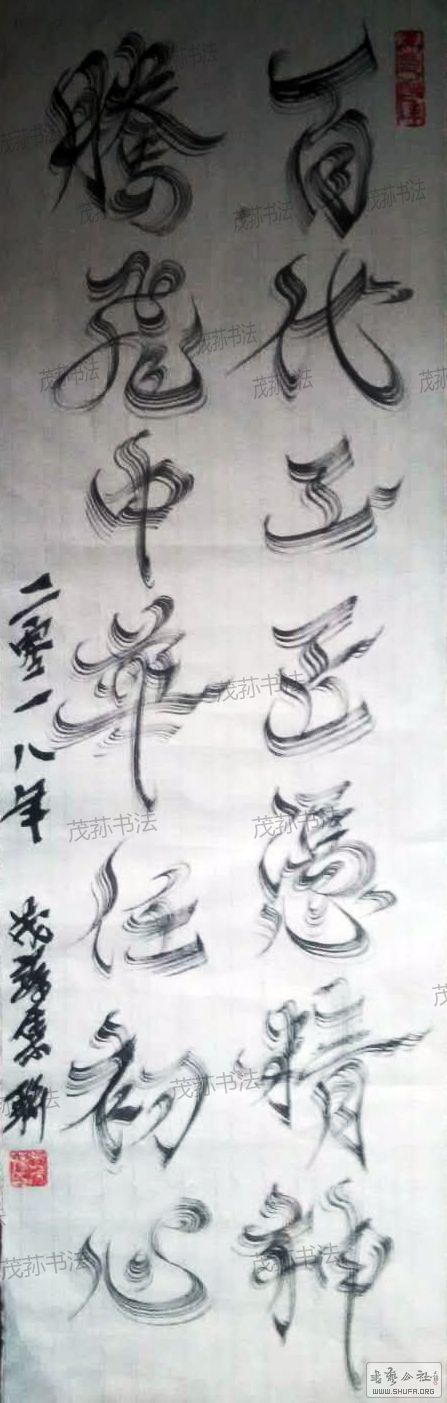 百代工匠憑精神
騰飛中華任初心
二零一八年 茂荪集聯
茂荪书法
书艺公社
WWW.SHUFA.ORG